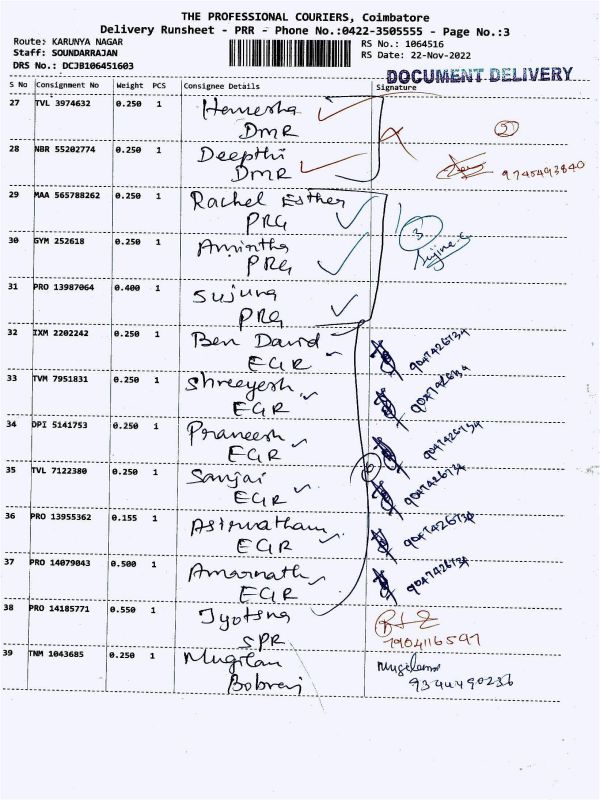 THE PROFESSIONAL COURIERS, Coimbatore
Delivery Runsheet - PRR - Phone No.:0422-3505555 - Page No.:3
Route: KARUNYA NAGAR
RS No.: 1064516
Staff: SOUNDARRAJAN
RS Date: 22-Nov-2022
DRS No.: DCJB106451603
DOCUMENT DELIVERY
S No Consignment No Weight PCS Consignee Details Signature
27 TVL 3974632 0.250 1 Hemesha
DMR
28 NBR 55202774 0.250 1 Deepthi
DMR 9745493840
29 MAA 565788262 0.250 1 Rachel Esther
PRG 3
30 GYM 252618 0.250 1 Amintha
PRG
31 PRO 13987064 0.400 1 Sujuna
PRG
32 IXM 2202242 0.250 1 Ben David
EGR 9047426734
33 TVM 7951831 0.250 1 Shreeyesh
EGR 9047426734
34 DPI 5141753 0.250 1 Praneesh
EGR 9047426734
35 TVL 7122380 0.250 1 Sanjai
EGR 9047426734
36 PRO 13955362 0.155 1 Asirvatham
EGR 9047426734
37 PRO 14079043 0.500 1 Amarnath
EGR 9047426734
38 PRO 14185771 0.550 1 Jyotsna
SPR 7904116597
39 TNM 1043685 0.250 1 Mugilan Mugilan
9344490236